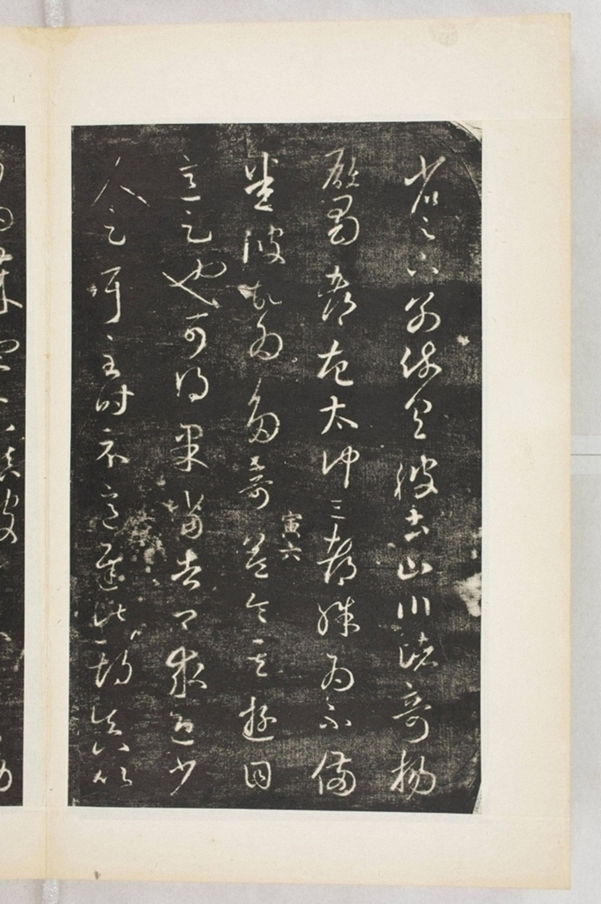 省足下別疏具彼土山川諸奇揚
雄蜀都左太沖三都殊為不備
寅六
悉彼故為多奇益令其遊目
意足也可得果當告卿求迎少
人足耳至時示意遲此期真以